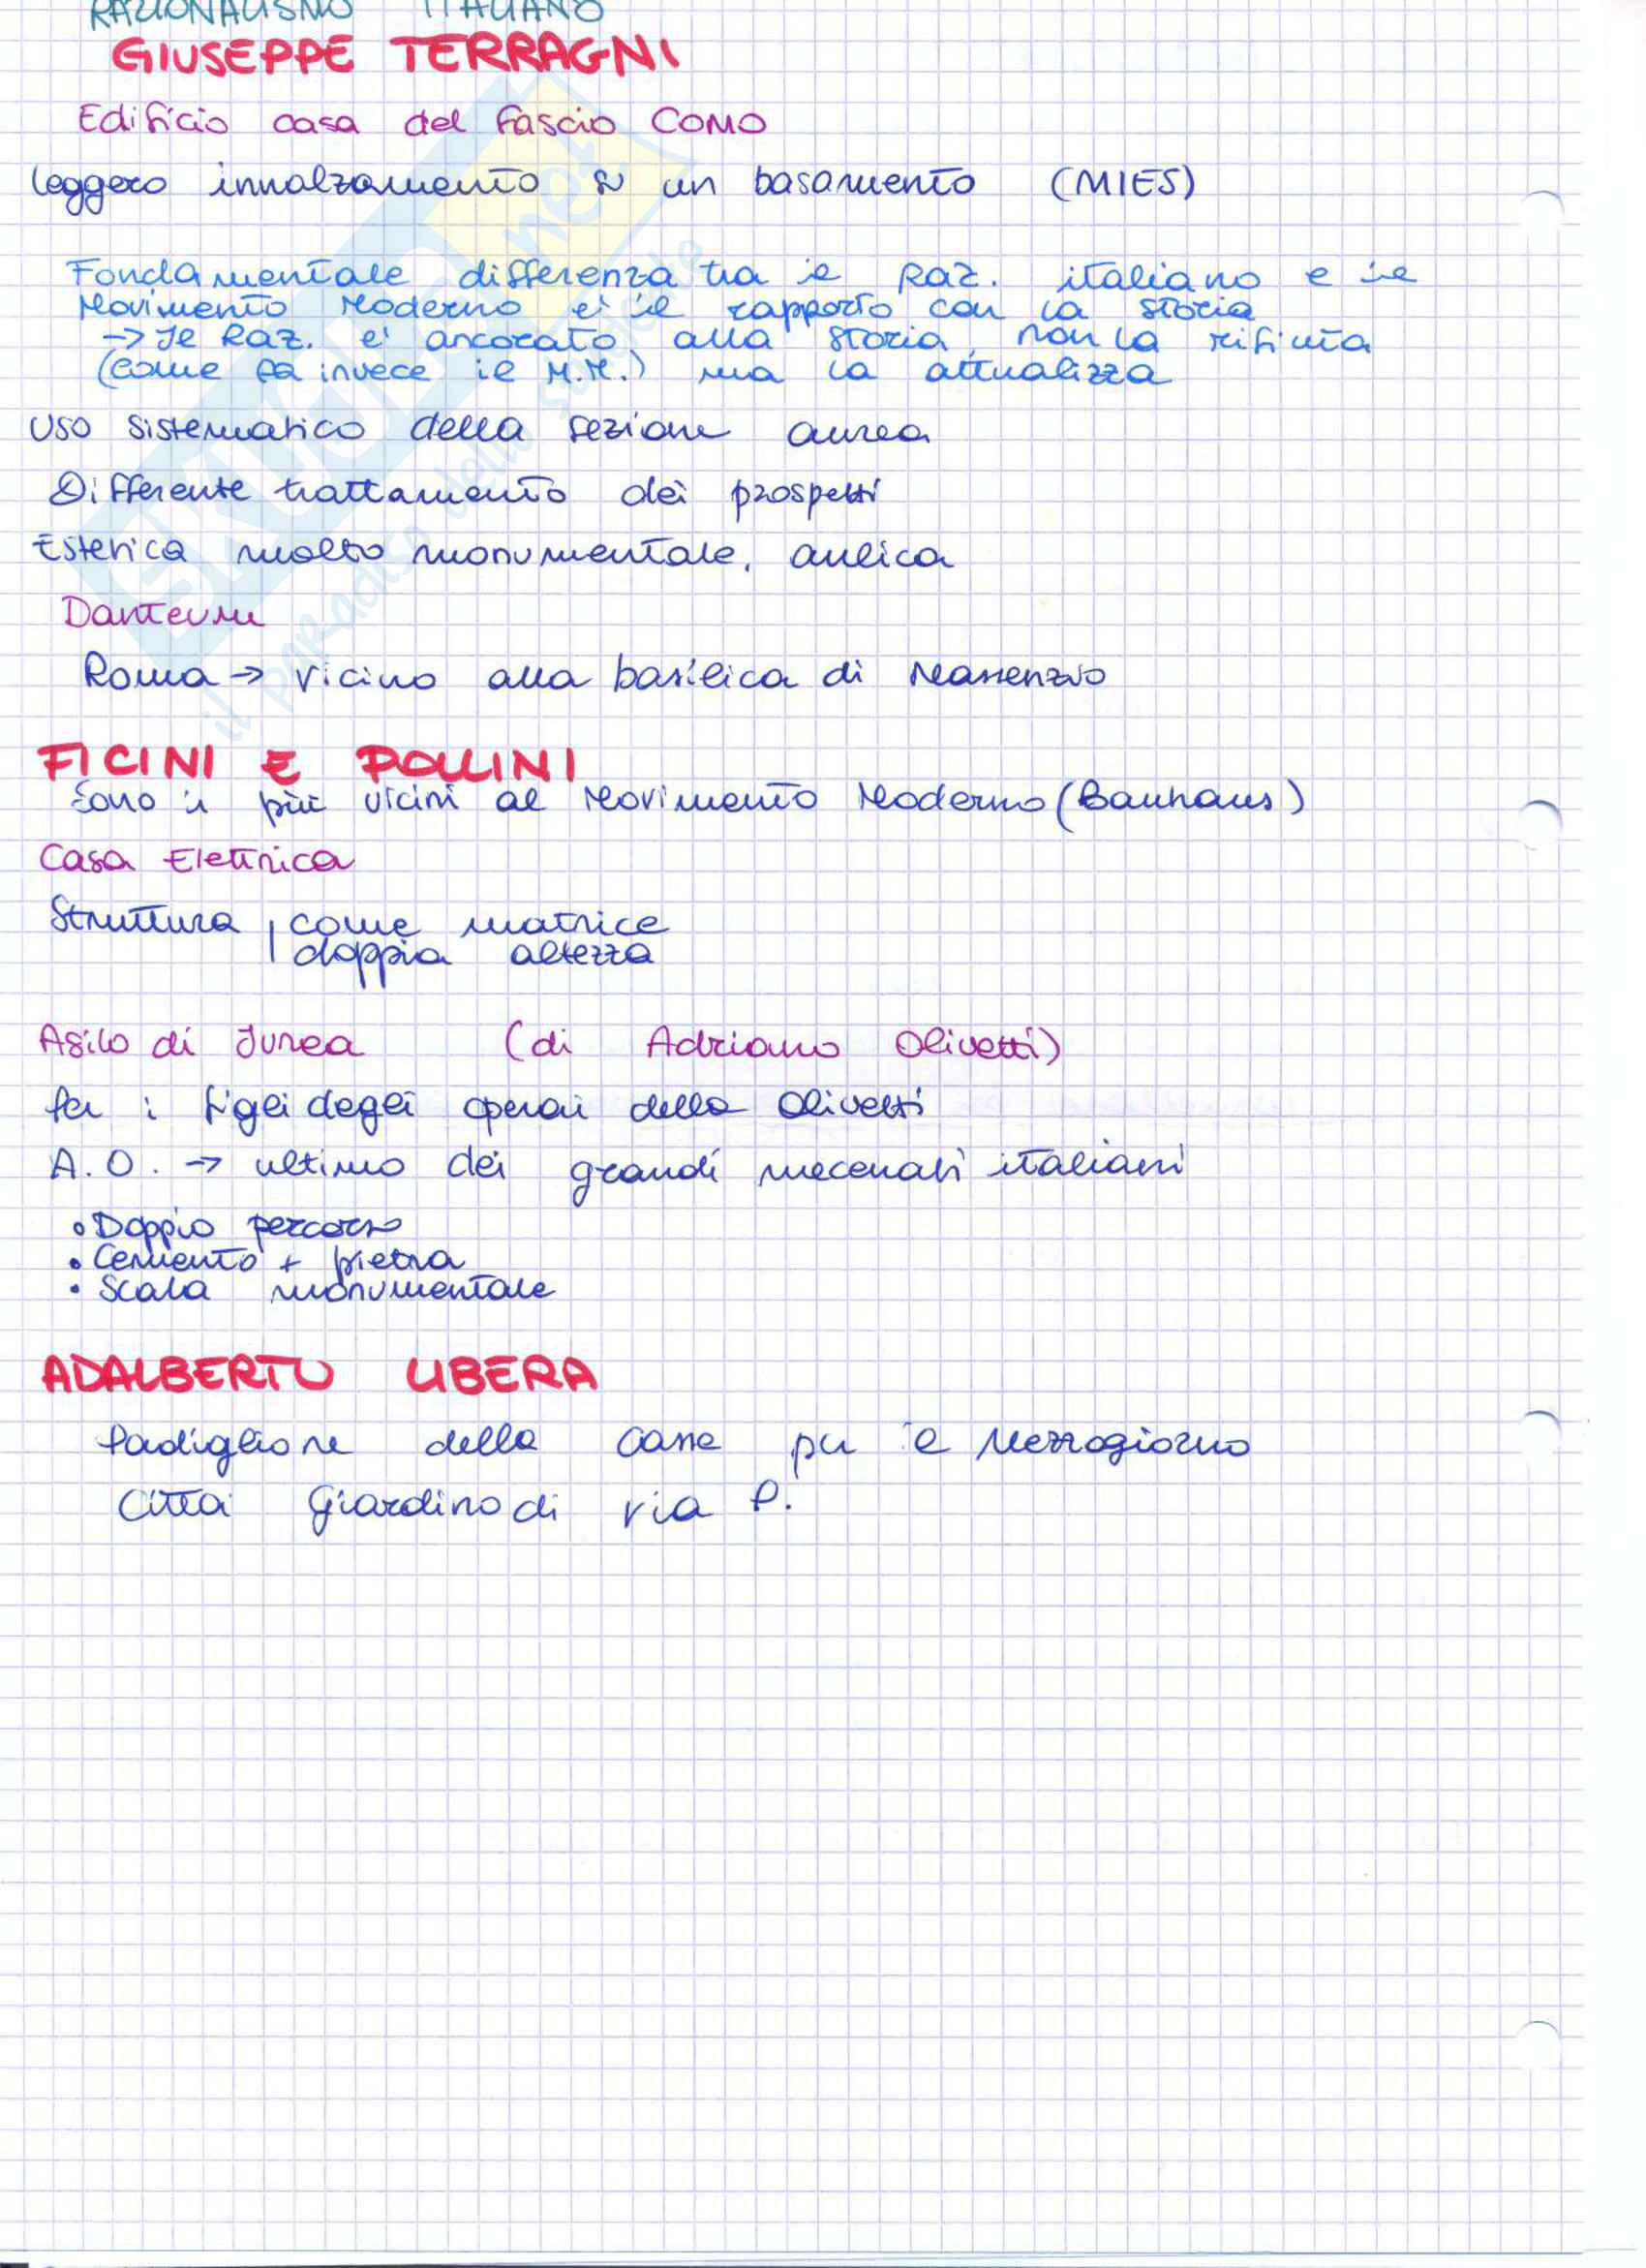 RAZIONALISMO ITALIANO
GIUSEPPE TERRAGNI
Edificio casa del fascio COMO
leggero innalzamento su un basamento (MIES)
Fondamentale differenza tra il Raz. italiano e il
Movimento Moderno e' il rapporto con la storia
-> Il Raz. e' ancorato alla storia, non la rifiuta
(come fa invece il M.M.) ma la attualizza
Uso sistematico della sezione aurea
Differente trattamento dei prospetti
Estetica molto monumentale, aulica
Danteum
Roma -> vicino alla basilica di Massenzio
FICINI E POLLINI
Sono i più vicini al Movimento Moderno (Bauhaus)
Casa Elettrica
Struttura | come matrice
| doppia altezza
Asilo di Ivrea (di Adriano Olivetti)
Per i figli degli operai della Olivetti
A.O. -> ultimo dei grandi mecenati italiani
• Doppio percorso
• Cemento + pietra
• Scala monumentale
ADALBERTO LIBERA
Padiglione della Casse per il Mezzogiorno
Città Giardino di via P.
SKUOLA.net
il paradiso dello studente